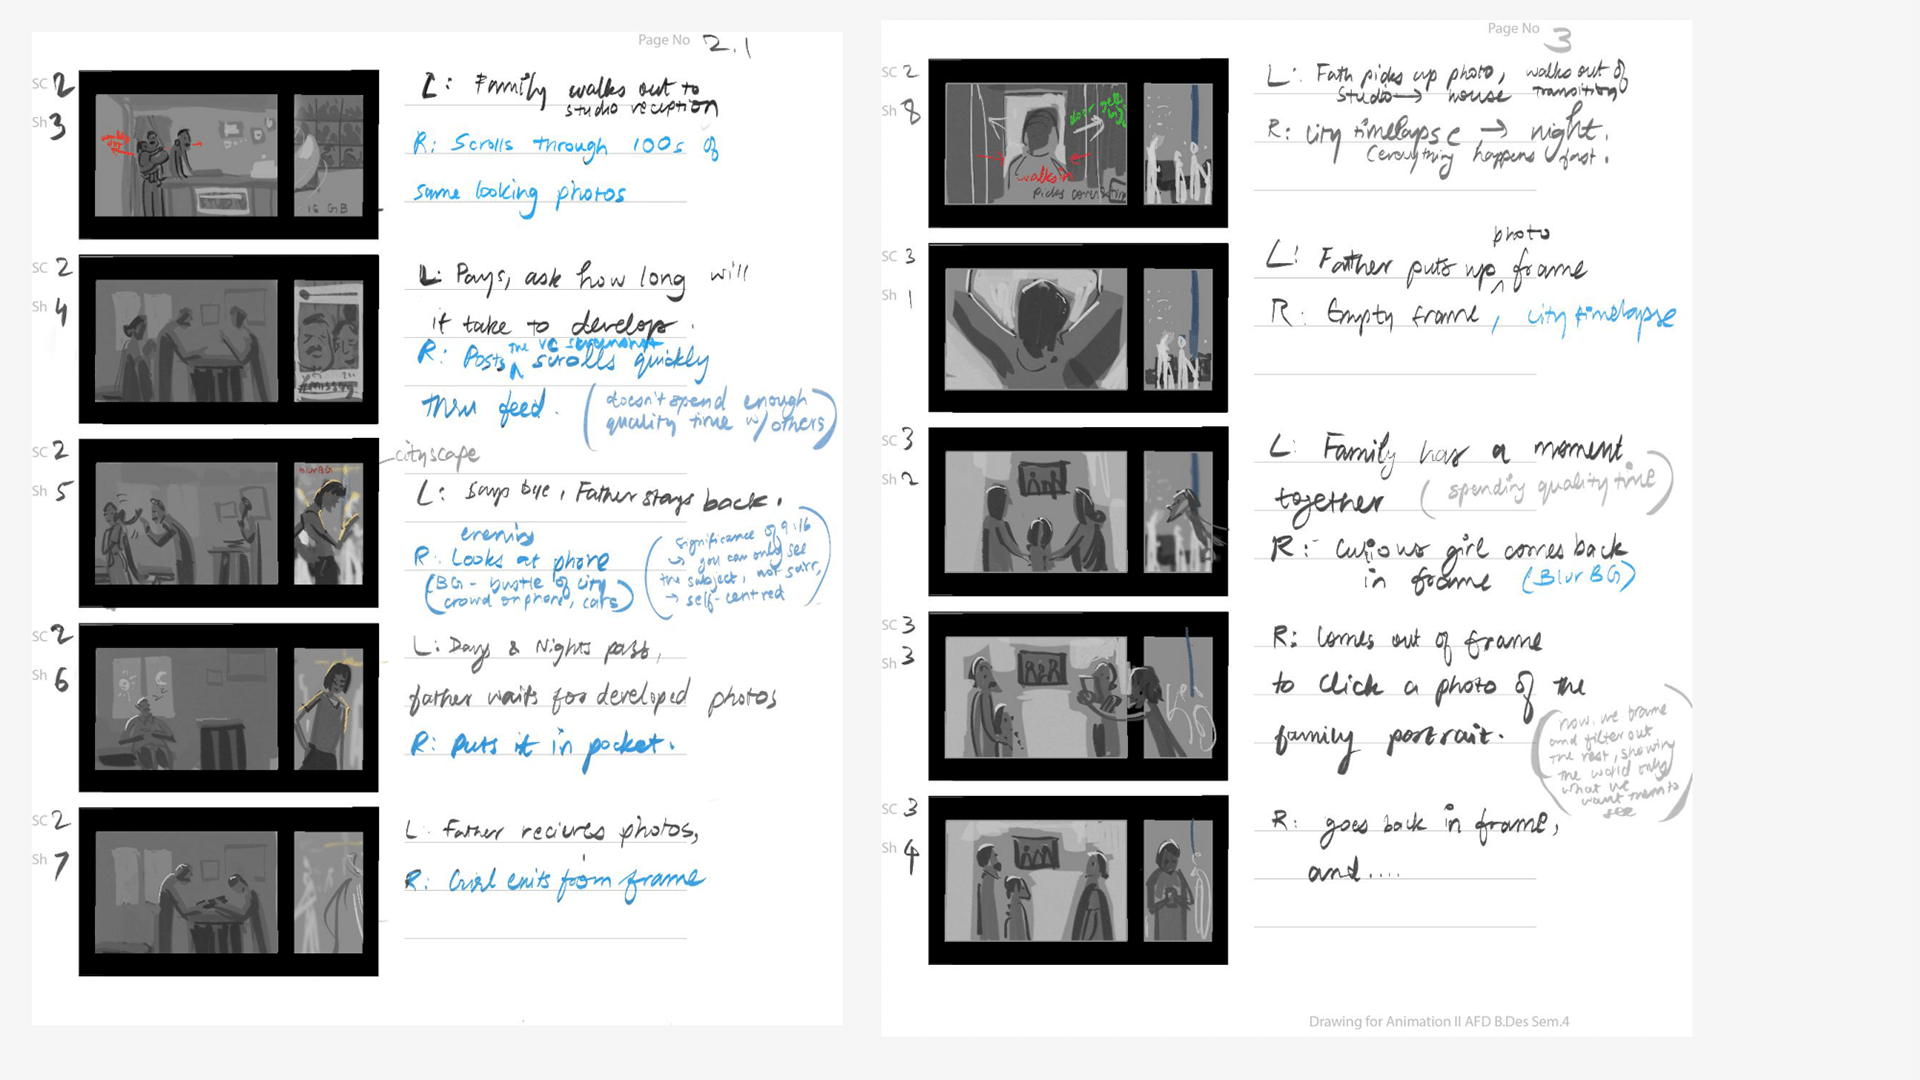 Page No 2.1
SC 2
Sh 3
L: Family walks out to
studio reception
R: Scrolls through 100s of
same looking photos
16 GB
SC 2
Sh 4
L: Pays, ask how long will
it take to develop.
R: Posts the vc screenshot scrolls quickly
thru feed.
(doesn't spend enough
quality time w/ others)
SC 2
Sh 5
blur BG
cityscape
L: Says bye, Father stays back.
evening
R: Looks at phone
(BG - bustle of city
crowd on phone, cars)
(significance of 9:16
→ you can only see
the subject, not surr,
→ self-centred
SC 2
Sh 6
L: Days & Nights pass,
father waits for developed photos
R: Puts it in pocket.
SC 2
Sh 7
L: Father recieves photos,
R: Girl exits from frame
Page No 3
SC 2
Sh 8
walks in
picks
L: Fath picks up photo, walks out of
studio → house transition
R: city timelapse → night.
(everything happens fast.
SC 3
Sh 1
L: Father puts up photo frame
R: Empty frame, city timelapse
SC 3
Sh 2
L: Family has a moment
together (spending quality time)
R:- Curious girl comes back
in frame (Blur BG)
SC 3
Sh 3
R: Comes out of frame
to click a photo of the
family portrait.
(now we frame
and filter out
the rest, showing
the world only
what we
want them to
see
SC 3
Sh 4
R: goes back in frame,
and....
Drawing for Animation II AFD B.Des Sem.4